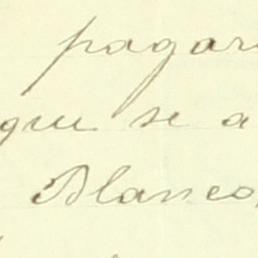 pagar
que se a
Blanco,